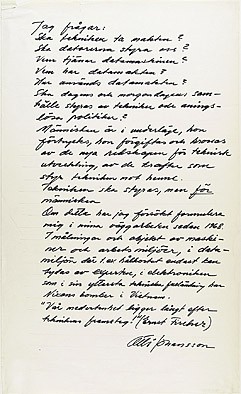 Jag frågar:
Ska tekniken ta makten?
Ska datorerna styra oss?
Vem tjänar datamaskinen?
Vem har datamakten?
Hur används datamakten?
Ska dagens och morgondagens sam-
hälle styras av tekniker och anings-
lösa politiker?
Människan är i underläge, hon
förtrycks, hon förgiftas och krossas
av de nya redskapen för teknisk
utveckling, av de krafter som
styr tekniken mot henne.
Tekniken ska styras, men för
människan
Om detta har jag försökt formulera
mig i mina väggarbeten sedan 1968.
I målningar och objekt av maski-
ner och arbets miljöer, i data-
miljön där t.ex. hålkortet endast kan
tydas av experten, i elektroniken
som i sin yttersta tekniska förlängning har
Nixons bomber i Vietnam.
"Vår medvetenhet ligger långt efter
teknikens framsteg." (Ernst Fischer)